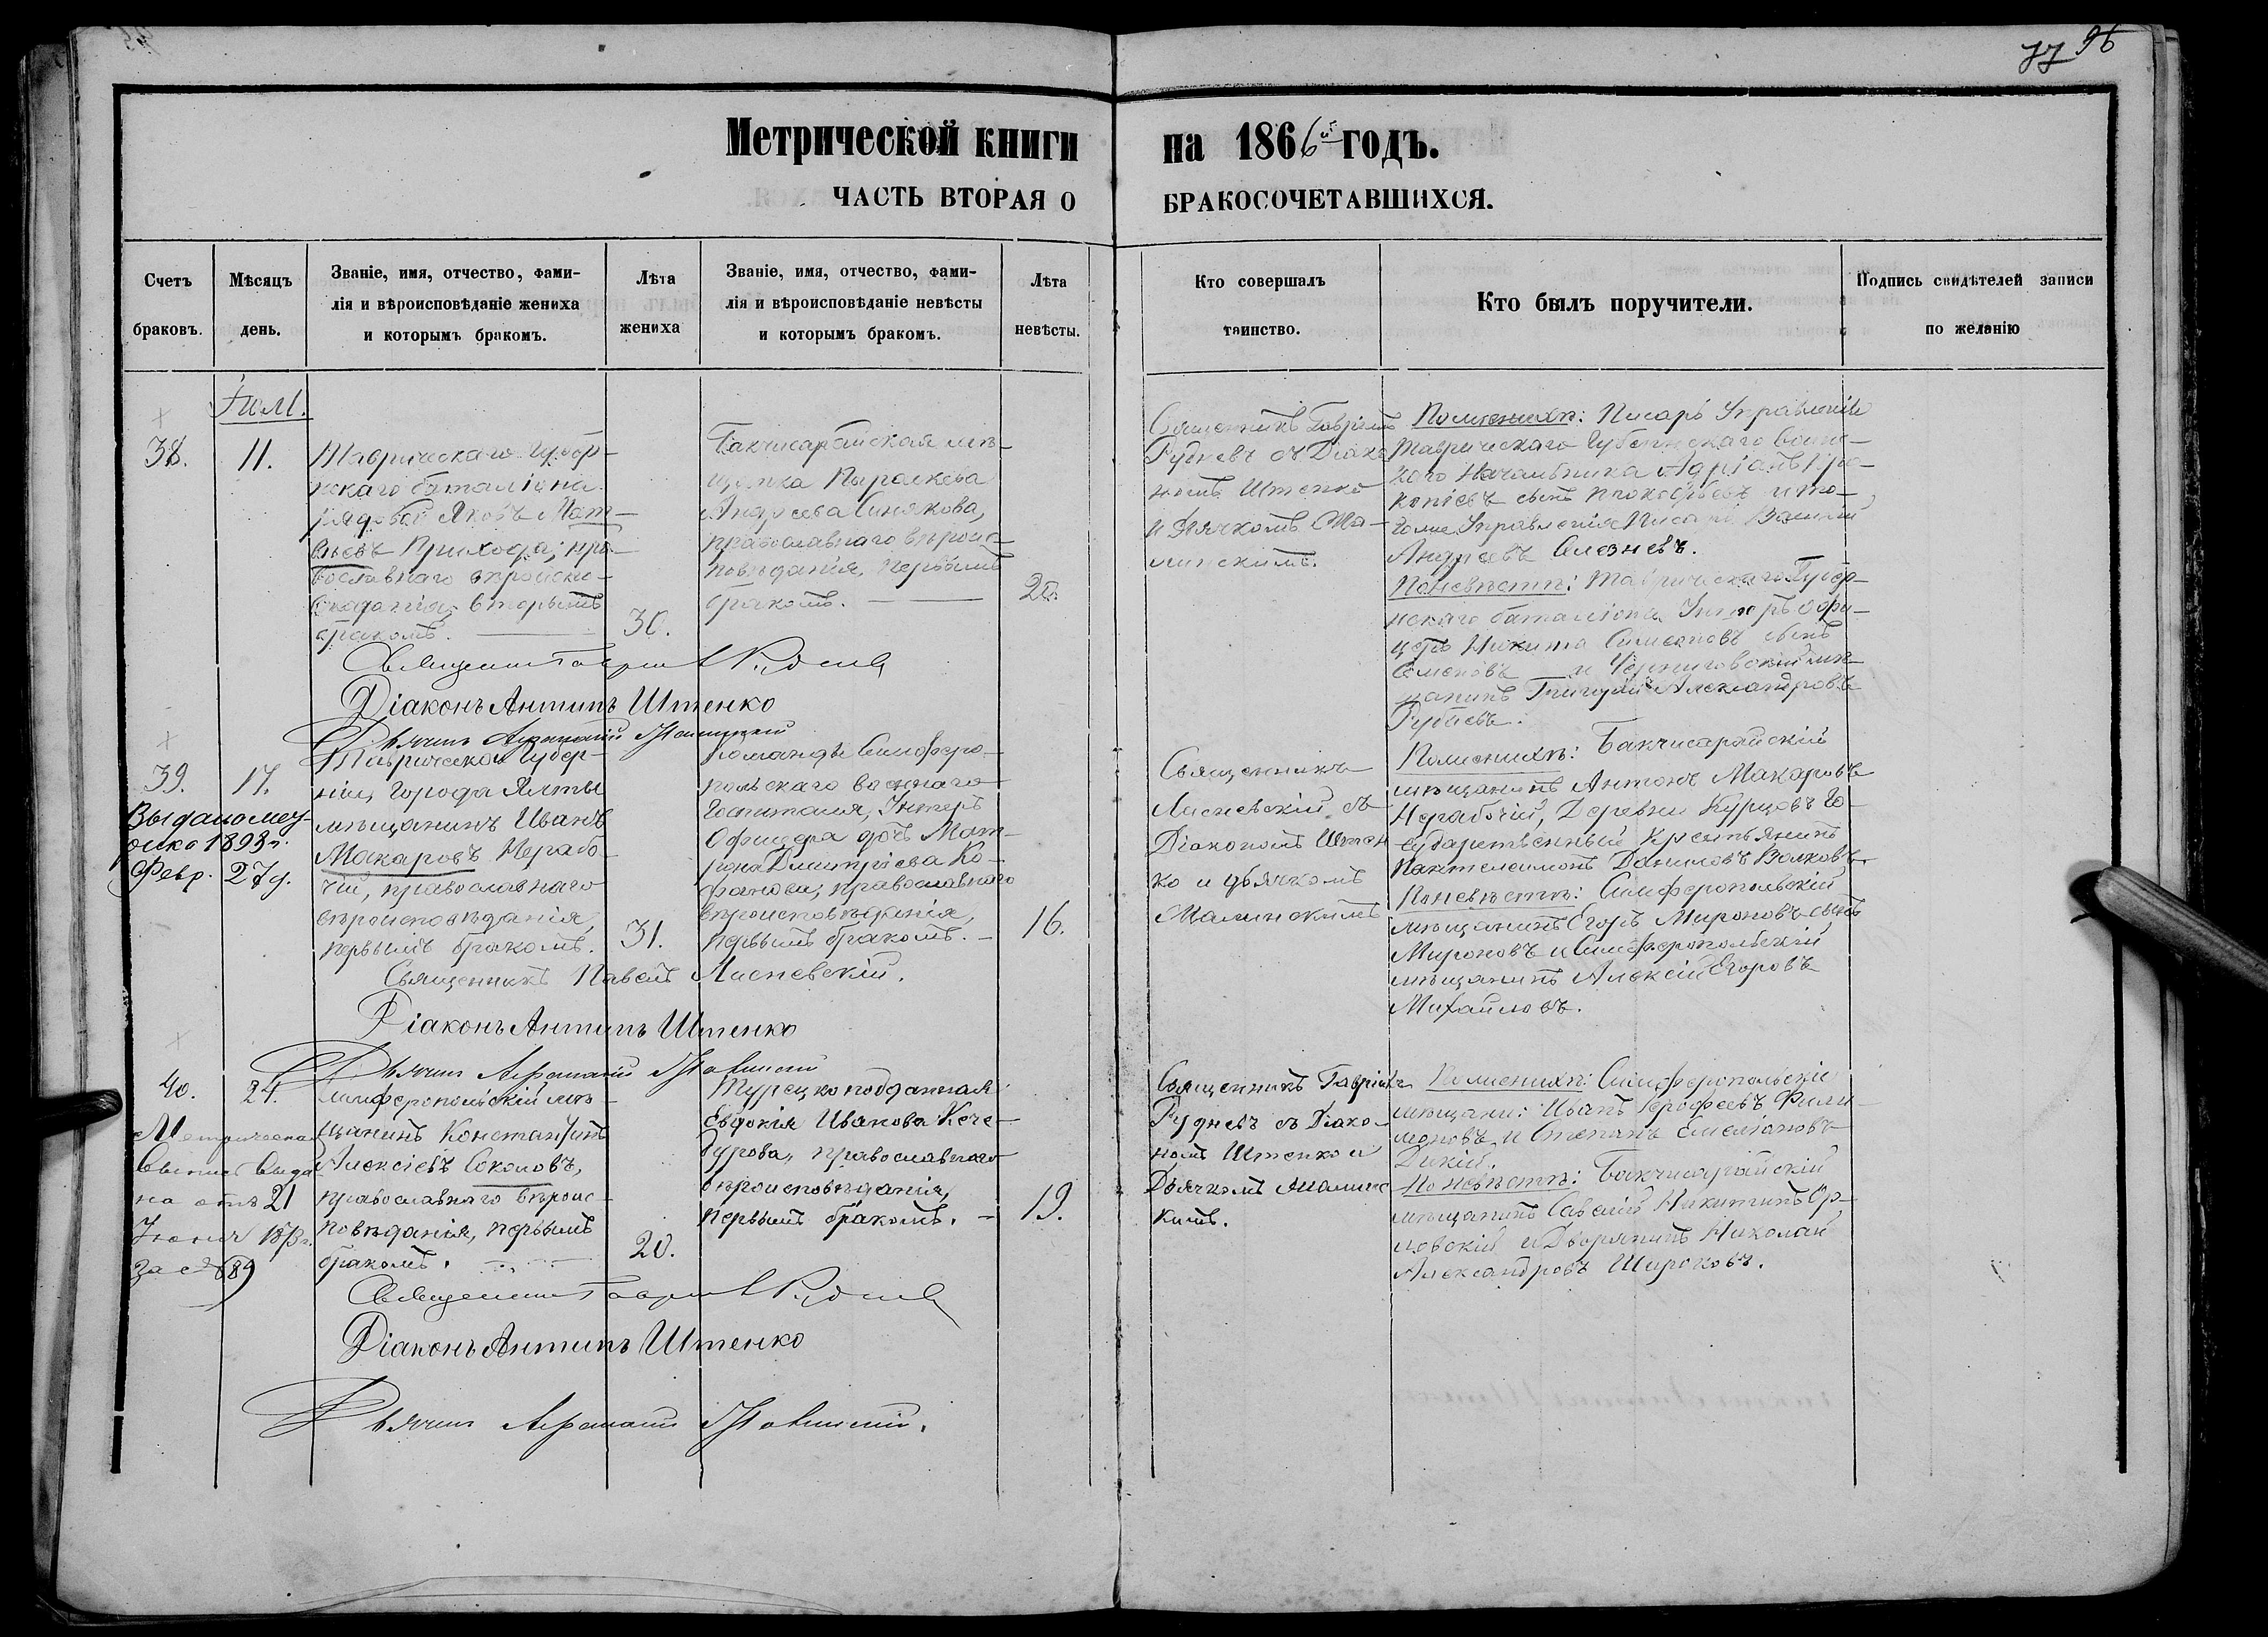 77 96
Метрической книги на 1866й годъ.
ЧАСТЬ ВТОРАЯ О БРАКОСОЧЕТАВШИХСЯ.
Счетъ
браковъ.
Мѣсяцъ
день.
Званіе, имя, отчество, фами-
лія и вѣроисповѣданіе жениха
и которымъ бракомъ.
Лѣта
жениха
Званіе, имя, отчество, фами-
лія и вѣроисповѣданіе невѣсты
и которымъ бракомъ.
Лѣта
невѣсты.
Кто совершалъ
таинство.
Кто былъ поручители.
Подпись свидѣтелей записи
по желанію
38.
11.
Таврическаго Губер-
нскаго баталіона
рядовой Яковъ Мат-
вѣевъ Приходa; пра-
вославнаго вѣроиспо-
вѣданія, вторымъ
бракомъ.
30.
Бакчисарайская мѣ-
щанка Параскева
Андреева Синякова,
православнаго вѣроис-
повѣданія, первымъ
бракомъ.
20.
Священникъ Гавріилъ
Рудневъ съ Діако-
номъ Штенко
и Дьячкомъ Ма-
линскимъ.
По женихѣ: Писарь Управленія
Таврическаго Губернскаго Воинс-
каго Начальника Адріанъ Про-
копіевъ сынъ Прокофьевъ и то-
гоже Управленія Писарь Василій
Андреевъ Селезневъ.
По невѣстѣ: Таврическаго Губер-
нскаго баталіона Унтеръ Офи-
церъ Никита Симеоновъ сынъ
Семеновъ и Черниговскій мѣ-
щанинъ Григорій Александровъ
Діаконъ Антипъ Штенко
39.
17.
Выдано мет-
рика 1893 г.
Февр. 27 д.
Таврической Губер-
ніи, города Ялты
мѣщанинъ Иванъ
Макаровъ Нерабо-
чій, православнаго
вѣроисповѣданія,
первымъ бракомъ.
31.
Команды Симферо-
польскаго военнаго
Госпиталя, Унтеръ
Офицера дочь Мат-
рона Димитріева Ко-
православнаго
вѣроисповѣданія,
первымъ бракомъ.
16.
Священникъ
Лисневскій съ
Діакономъ Штен-
ко и дьячкомъ
Малинскимъ
По женихѣ: Бакчисарайскій
мѣщанинъ Антонъ Макаровъ
Нерабочій, Деревни Курцовъ Го-
сударственный Крестьянинъ
Пантелеимонъ Даниловъ Волковъ.
По невѣстѣ: Симферопольскій
мѣщанинъ Егоръ Мироновъ сынъ
Мироновъ и Симферопольскій
мѣщанинъ Алексій Егоровъ
Михайловъ.
Священникъ Павелъ Лисневскій.
Діаконъ Антипъ Штенко
40.
24.
Метрическая
выпись выда
на отъ 21
Іюня
за № 689
Симферопольскій мѣ-
щанинъ Константинъ
Алексіевъ Соколовъ,
православнаго вѣроис-
повѣданія, первымъ
бракомъ.
20.
Турецкоподданная
Евдокія Иванова Кече-
дурова, православнаго
вѣроисповѣданія,
первымъ бракомъ.
19.
Священникъ Гавріилъ
Рудневъ съ Діако-
номъ Штенко и
Дьячкомъ Малинс-
кимъ.
По женихѣ: Симферопольскіе
мѣщане: Иванъ Ерофеевъ Фили-
моновъ и Степанъ Емеліановъ
Дикій.
По невѣстѣ: Бакчисарайскій
мѣщанинъ Савелій Никитинъ Ор-
ловскій и Дворянинъ Николай
Александровъ Широковъ.
Діаконъ Антипъ Штенко